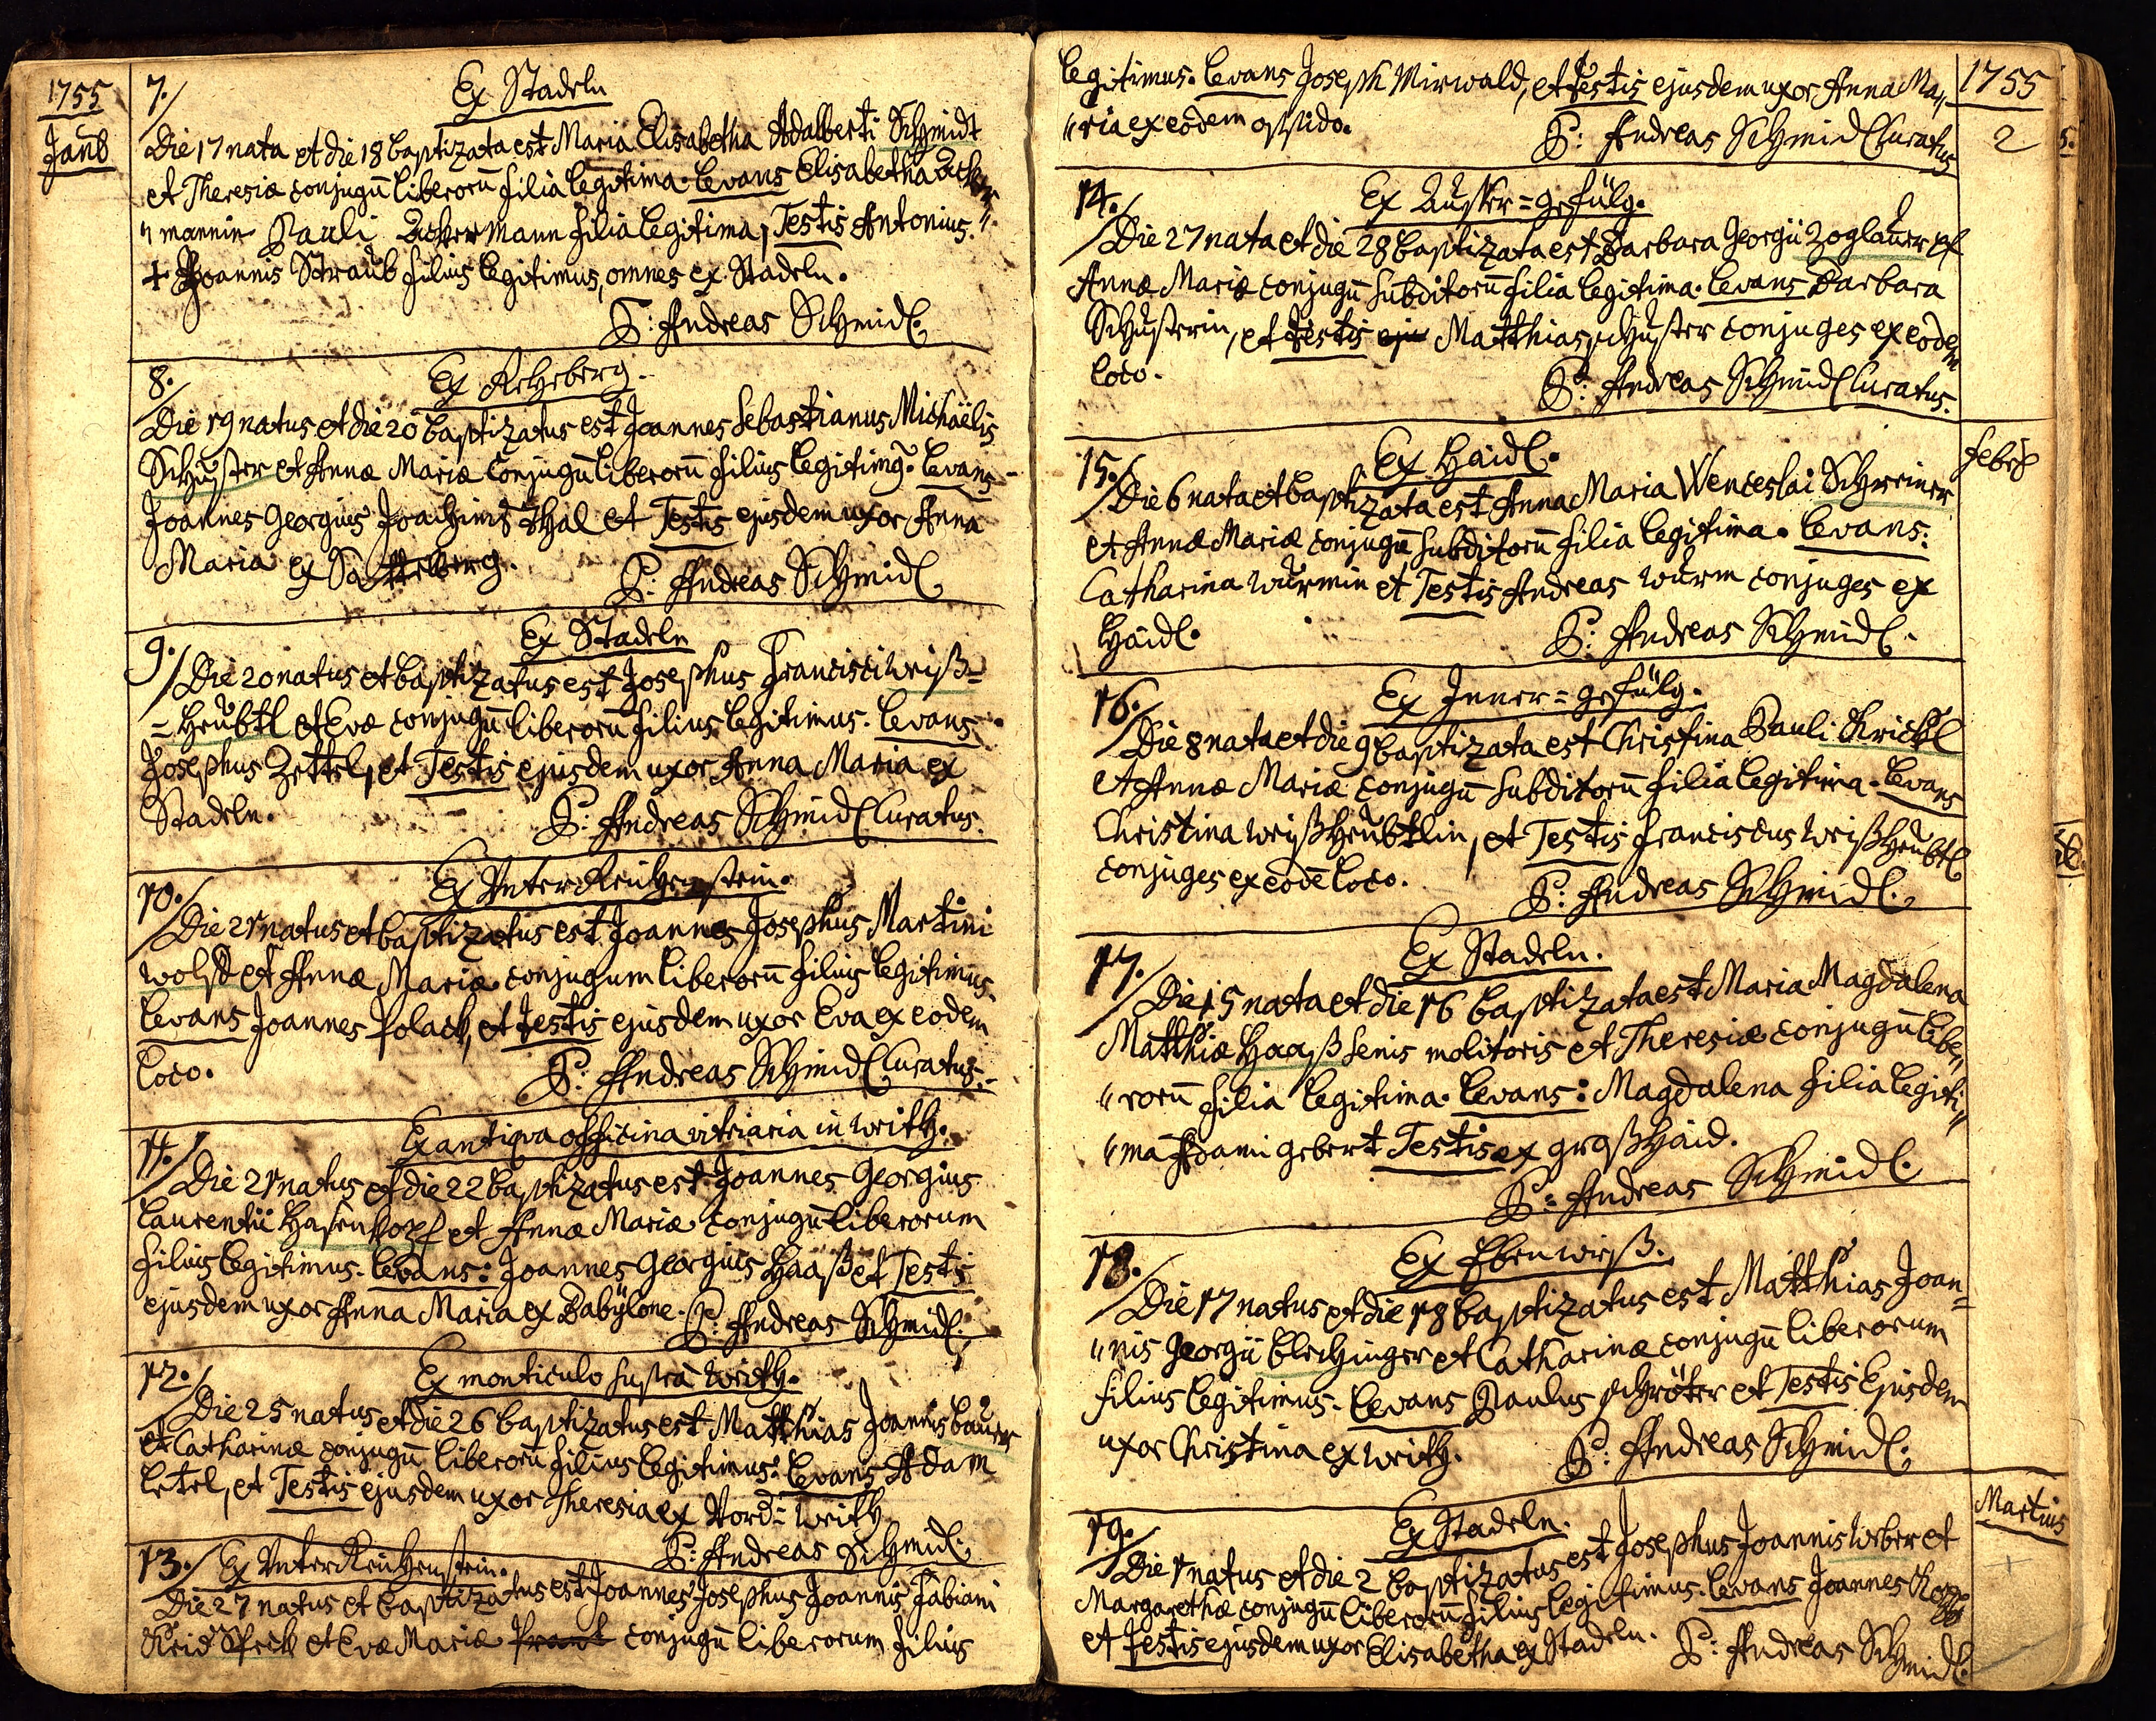 1755
Janu
7. Ex Stadeln
Die 17 nata et die 18 baptizata est Maria Elisabetha Adalberti Schmidt
et Theresiæ conjugū liberorū filia legitima. Levans Elisabetha Acker,,
,,mannin Pauli Ackermann filia legitima, Testis Antonius.
+ Joannis Straub filius legitimus, omnes ex Stadeln.
P: Andreas Schmidl.
8. Ex Rehberg.
Die 19 natus et die 20 baptizatus est Joannes Sebastianus Michaëlis
Schuster et Annæ Mariæ conjugū liberorū filius legitimg. Levans
Joannes Georgius Joachimsthal et Testis ejusdem uxor Anna
Maria ex
P: Andreas Schmidl
9. Ex Stadeln
Die 20 natus et baptizatus est Josephus Francisci Weiß=
=heubtl et Evæ conjugū liberorū filius legitimus. Levans
Josephus Zettel, et Testis ejusdem uxor Anna Maria ex
Stadeln.
P: Andreas Schmidl Curatus.
10. Ex Unter Reichenstein.
Die 21 natus et baptizatus est Joannes Josephus Martini
Wolf et Annæ Mariæ conjugum liberorū filius legitimus.
Levans Joannes Polack, et Testis ejusdem uxor Eva ex eodem
loco.
P: Andreas Schmidl Curatus.
11. Ex antiqva officina vitriaria in Weith.
Die 21 natus et die 22 baptizatus est Joannes Georgius
Laurentii Hasenkopf et Annæ Mariæ conjugū liberorum
filius legitimus. Levans: Joannes Georgius Haaß et Testis
ejusdem uxor Anna Maria ex Babÿlone. P: Andreas Schmidl.
12. Ex monticulo supra Weith.
Die 25 natus et die 26 baptizatus est Matthias Joannis Bauer
et Catharinæ conjugū liberorū filius legitimus. Levans Adam
et Testis ejusdem uxor Theresia ex Weith
P: Andreas Schmidl.
13. Ex Unter Reichenstein.
Die 27 natus et baptizatus est Joannes Josephus Joannis Fabiani
et Evæ Mariæ conjugū liberorum filius
legitimus. Levans Joseph Mirwald, et Testis ejusdem uxor Anna Ma,,
,,ria ex eodem oppido.
P: Andreas Schmidl Curatus
1755
2
14. Ex Ausser=gefülg.
Die 27 nata et die 28 baptizata est Barbara Georgii Zoglauer et
Annæ Mariæ conjugū subditorū filia legitima. Levans Barbara
Schusterin, et Testis eju Matthias Schuster conjuges ex eodem
loco.
P: Andreas Schmidl Curatus.
15. Ex Haidl.
Die 6 nata et baptizata est Anna Maria Wenceslai Schreiner
et Annæ Mariæ conjugū subditorū filia legitima. Levans:
Catharina Wurmin et Testis Andreas Wurm conjuges ex
Haidl.
P: Andreas Schmidl.
16. Ex Inner=gefülg.
Die 8 nata et die 9 baptizata est Christina Pauli Krickl
et Annæ Mariæ conjugū subditorū filia legitima. Levans
Christina Weißheubtlin, et Testis Franciscus Weißheubtl
conjuges ex eodē loco.
P: Andreas Schmidl.
17. Ex Stadeln.
Die 15 nata et die 16 baptizata est Maria Magdalena
Matthiæ Haaß senis molitoris et Theresiæ conjugū libe,,
,,rorū filia legitima. Levans: Magdalena filia legiti,,
,,ma Adami Gebert Testis ex großhaid.
P: Andreas Schmidl.
18. Ex Ebenwieß.
Die 17 natus et die 18 baptizatus est Matthias Joan=
,,nis Georgii Blechinger et Catharinæ conjugū liberorum
filius legitimus. Levans Paulus Schröter et Testis Ejusdem
uxor Christina ex Weith.
P: Andreas Schmidl.
Martius
19. Ex Stadeln.
Die 1 natus et die 2 baptizatus est Josephus Joannis Weber et
Margarethæ conjugū liberorū filius legitimus. Levans Joannes
et Testis ejusdem uxor Elisabetha ex Stadeln. P: Andreas Schmidl.